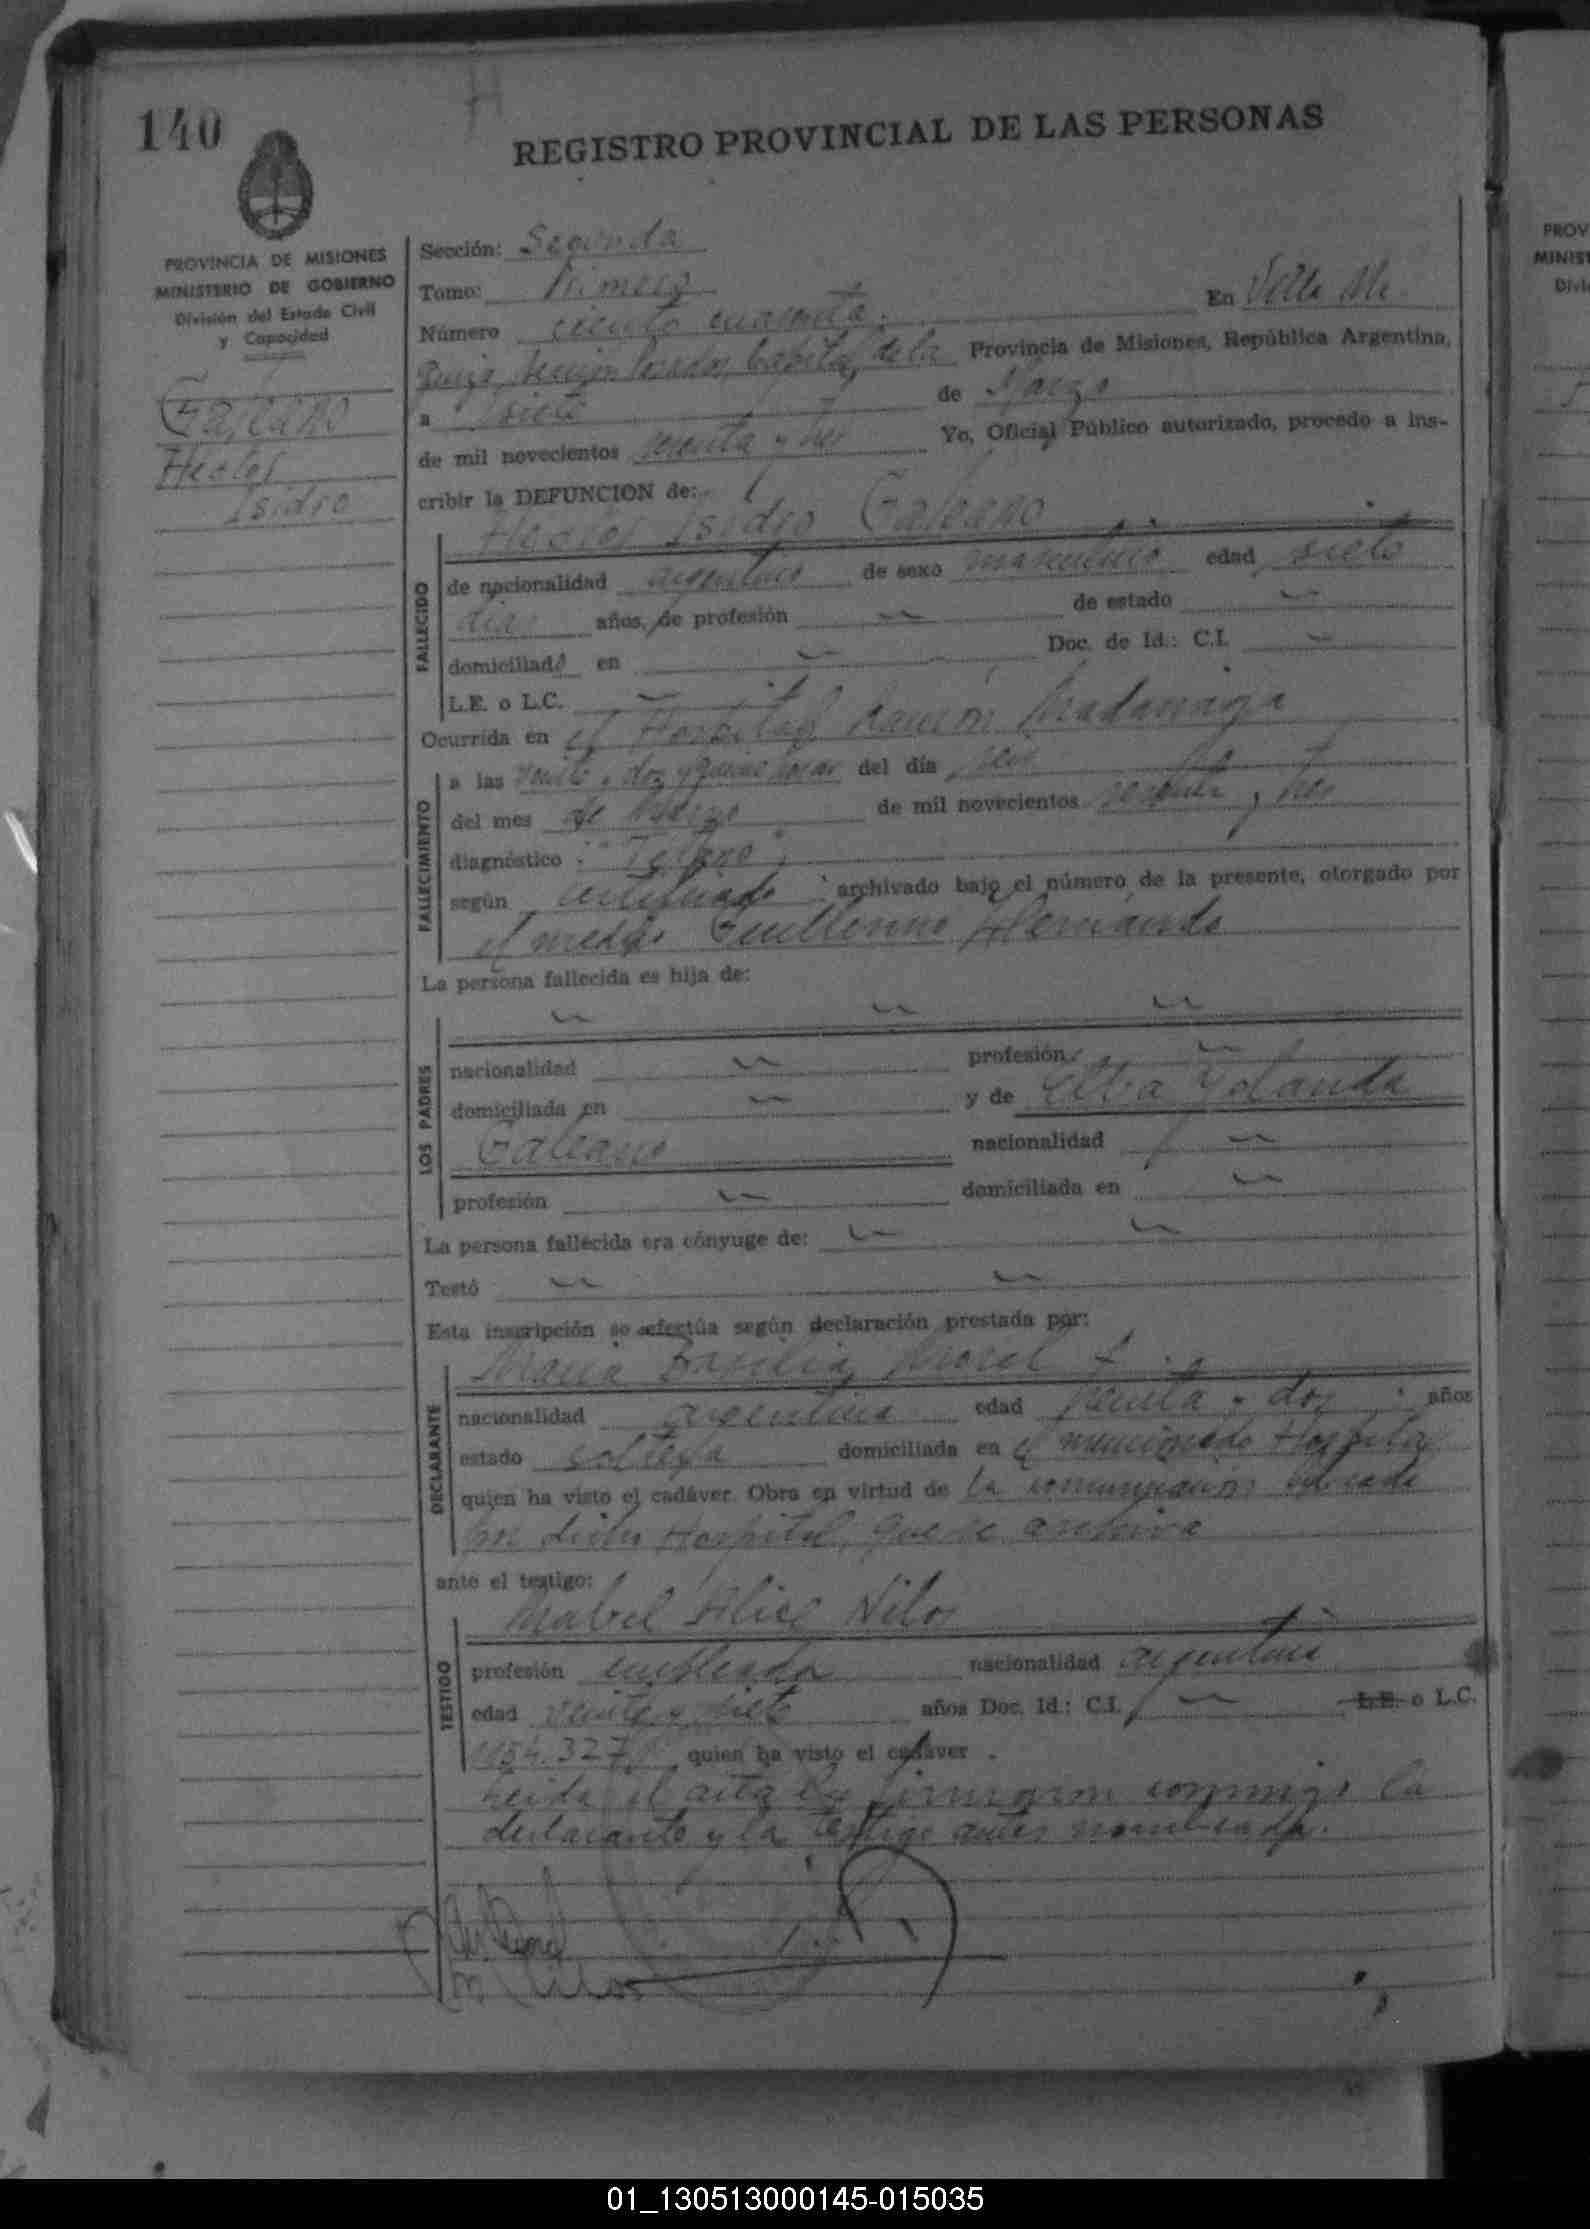 140
REGISTRO PROVINCIAL DE LAS PERSONAS
PROVINCIA DE MISIONES
MINISTERIO DE GOBIERNO
División del Estado Civil
y Capacidad
Galeano
Hector
Isidro
Sección: Segunda
Tomo: Primero
En Villa
Número ciento cuarenta
Capital de la Provincia de Misiones, República Argentina,
a siete de Marzo
de mil novecientos sesenta y tres Yo, Oficial Público autorizado, procedo a ins-
cribir la DEFUNCION de:
Hector Isidro Galeano
FALLECIDO
de nacionalidad argentino de sexo masculino edad siete
dias años, de profesión de estado
domiciliado en Doc. de Id.: C.I.
L.E. o L.C.
Ocurrida en el Hospital Ramón Madariaga
FALLECIMIENTO
a las veinte y dos y quince horas del día seis
del mes de Marzo de mil novecientos sesenta y tres
diagnóstico: "Tétano"
según certificado archivado bajo el número de la presente, otorgado por
el medico Guillermo Hernando
La persona fallecida es hija de:
LOS PADRES
nacionalidad profesión
domiciliada en y de Elba Yolanda
Galeano nacionalidad
profesión domiciliada en
La persona fallecida era cónyuge de:
Testó
Esta inscripción se efectúa según declaración prestada por:
DECLARANTE
Maria Basilia Morel
nacionalidad argentina edad treinta y dos años
estado soltera domiciliada en el mencionado Hospital
quien ha visto el cadáver. Obra en virtud de la comunicación
por dicho Hospital, que se archiva
ante el testigo:
TESTIGO
Mabel Alice
profesión empleada nacionalidad argentina
edad veinte y siete años Doc. Id.: C.I. L.E. o L.C.
quien ha visto el cadáver.
Leida el acta la firmaron conmigo la
declarante y la testigo antes nombrada.
PROV
MINIST
01_130513000145-015035